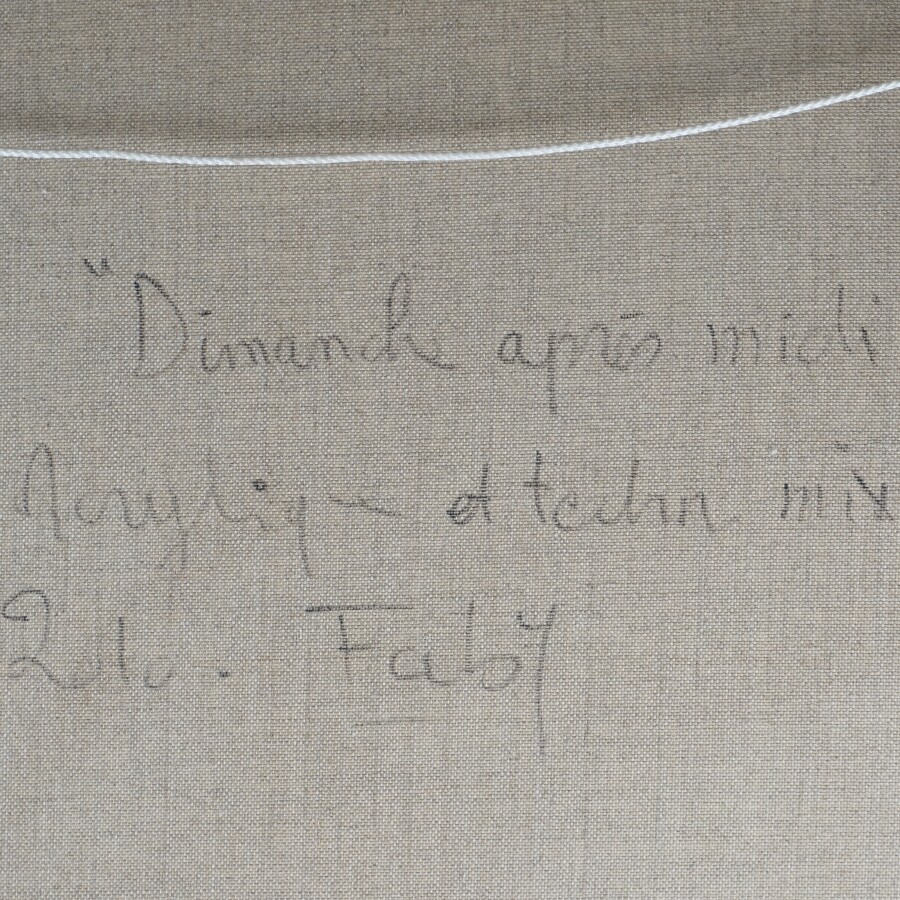 "Dimanche après midi
Acrylique et techn mix
2010. Faby